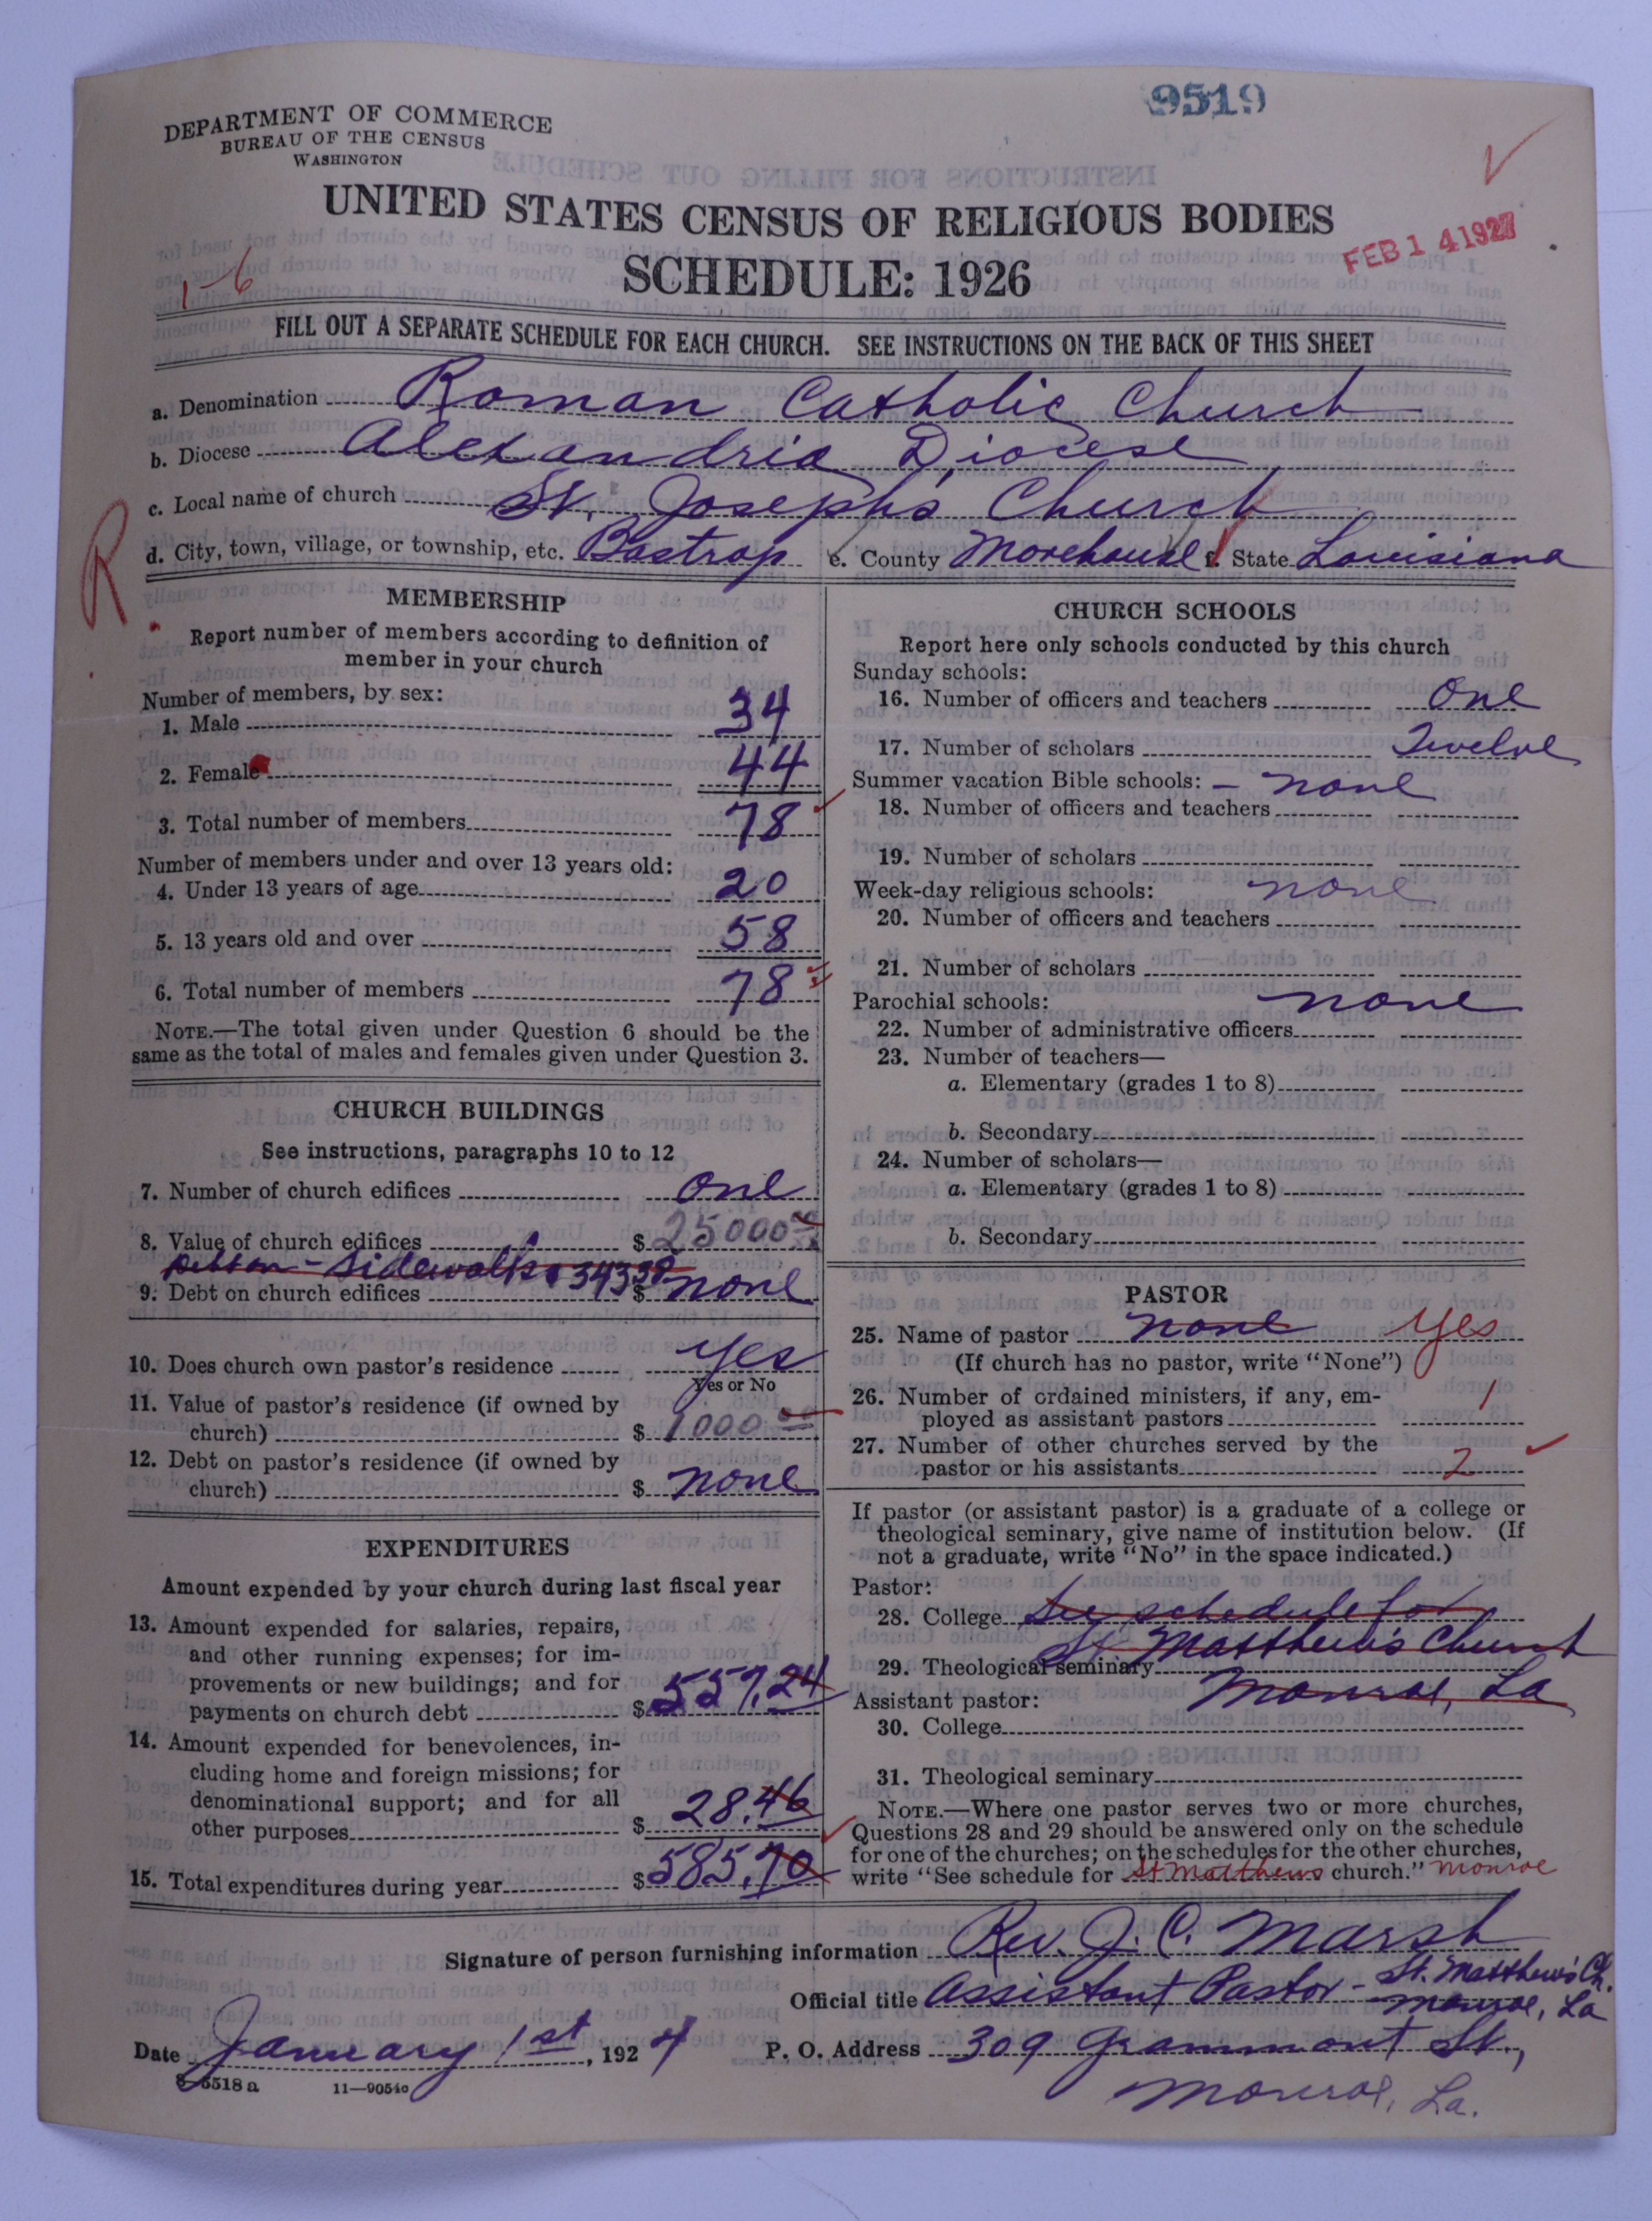 9519
DEPARTMENT OF COMMERCE
BUREAU OF THE CENSUS
WASHINGTON
UNITED STATES CENSUS OF RELIGIOUS BODIES
SCHEDULE: 1926
FEB 14 1927
1-6
FILL OUT A SEPARATE SCHEDULE FOR EACH CHURCH. SEE INSTRUCTIONS ON THE BACK OF THIS SHEET
a. Denomination Roman Catholic Church
b. Diocese Alexandria Diocese
c. Local name of church St. Joseph's Church
R
d. City, town, village, or township, etc. Bastrop e. County Morehouse f. State Louisiana
MEMBERSHIP
Report number of members according to definition of
member in your church
Number of members, by sex:
1. Male 34
2. Female 44
3. Total number of members 78
Number of members under and over 13 years old:
4. Under 13 years of age 20
5. 13 years old and over 58
6. Total number of members 78
NOTE.—The total given under Question 6 should be the
same as the total of males and females given under Question 3.
CHURCH BUILDINGS
See instructions, paragraphs 10 to 12
7. Number of church edifices one
8. Value of church edifices $ 25000
Sidewalks 343
9. Debt on church edifices $ none
10. Does church own pastor's residence yes
Yes or No
11. Value of pastor's residence (if owned by
church) $ 1000 00
12. Debt on pastor's residence (if owned by
church) $ none
EXPENDITURES
Amount expended by your church during last fiscal year
13. Amount expended for salaries, repairs,
and other running expenses; for im-
provements or new buildings; and for
payments on church debt $ 557.24
14. Amount expended for benevolences, in-
cluding home and foreign missions; for
denominational support; and for all
other purposes $ 28.46
15. Total expenditures during year $ 585.70
CHURCH SCHOOLS
Report here only schools conducted by this church
Sunday schools:
16. Number of officers and teachers one
17. Number of scholars Twelve
Summer vacation Bible schools: - none
18. Number of officers and teachers
19. Number of scholars
Week-day religious schools: none
20. Number of officers and teachers
21. Number of scholars
Parochial schools: none
22. Number of administrative officers
23. Number of teachers—
a. Elementary (grades 1 to 8)
b. Secondary
24. Number of scholars—
a. Elementary (grades 1 to 8)
b. Secondary
PASTOR
25. Name of pastor none yes
(If church has no pastor, write "None")
26. Number of ordained ministers, if any, em-
ployed as assistant pastors 1
27. Number of other churches served by the
pastor or his assistants 2
If pastor (or assistant pastor) is a graduate of a college or
theological seminary, give name of institution below. (If
not a graduate, write "No" in the space indicated.)
Pastor:
28. College See schedule for
St Matthew's Church
29. Theological seminary
Monroe, La
Assistant pastor:
30. College
31. Theological seminary
NOTE.—Where one pastor serves two or more churches,
Questions 28 and 29 should be answered only on the schedule
for one of the churches; on the schedules for the other churches,
write "See schedule for St Matthews church." Monroe
Signature of person furnishing information Rev. J. C. Marsh
Official title Assistant Pastor - St. Matthew's Ch.
Monroe, La
Date January 1st, 1924 P. O. Address 309 Grammont St.,
Monroe, La.
8-5518a 11—9054c